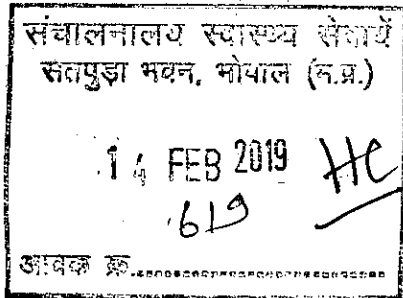 संचालनालय स्वास्थ्य सेवायें
सतपुड़ा भवन, भोपाल (म.प्र.)
14 FEB 2019 HC
619
आवक क्र.